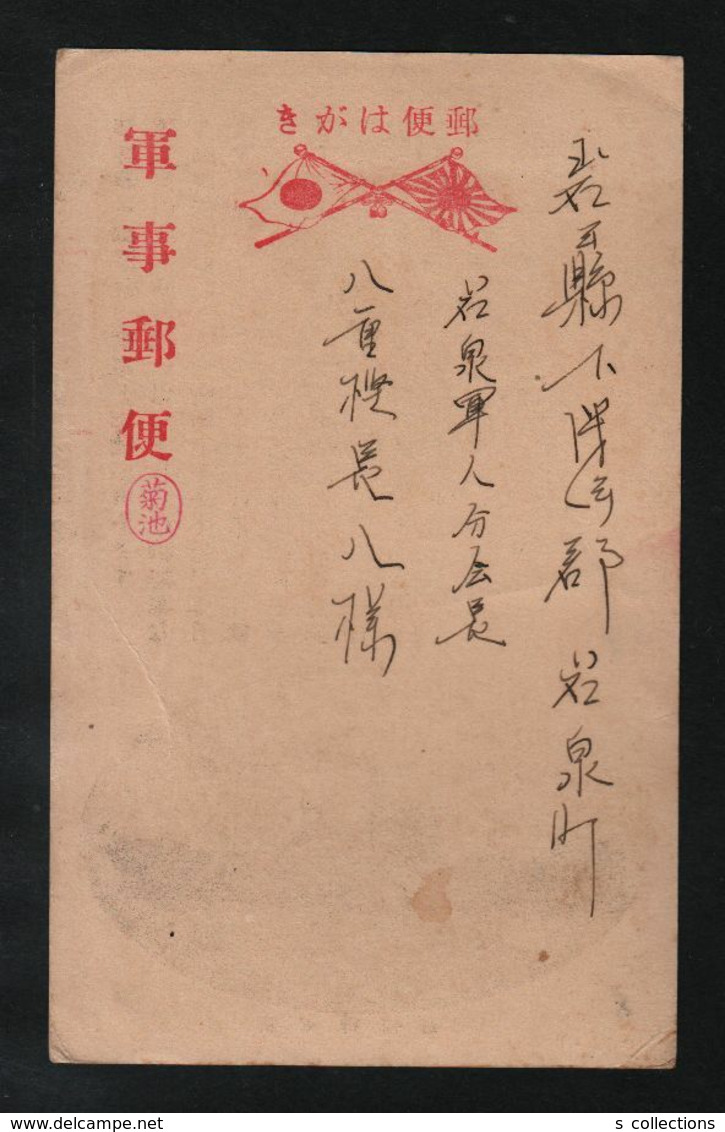 郵便はがき
岩手縣下閉伊郡岩泉町
岩泉軍人分会長
八重樫長八様
軍事郵便
菊池
www.delcampe.net
s collections